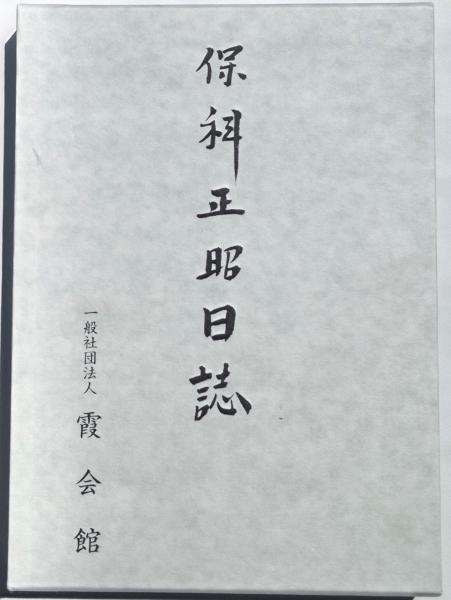 保科正昭日誌
一般社団法人 霞会館